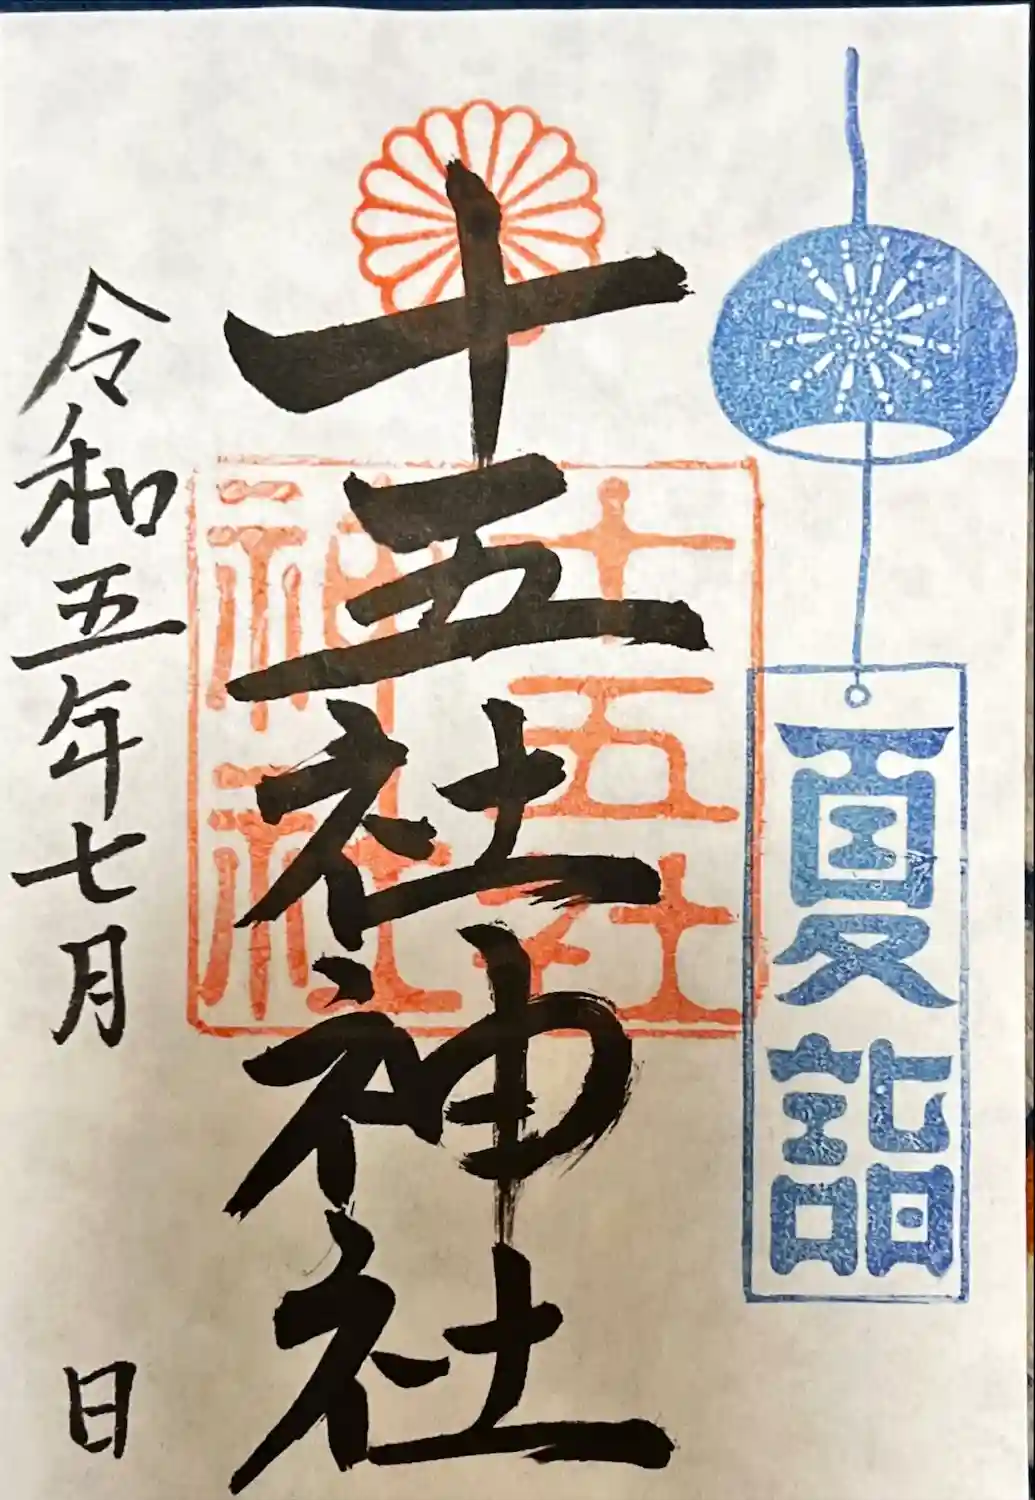 夏詣
十五社神社
十五社
神社
令和五年七月 日